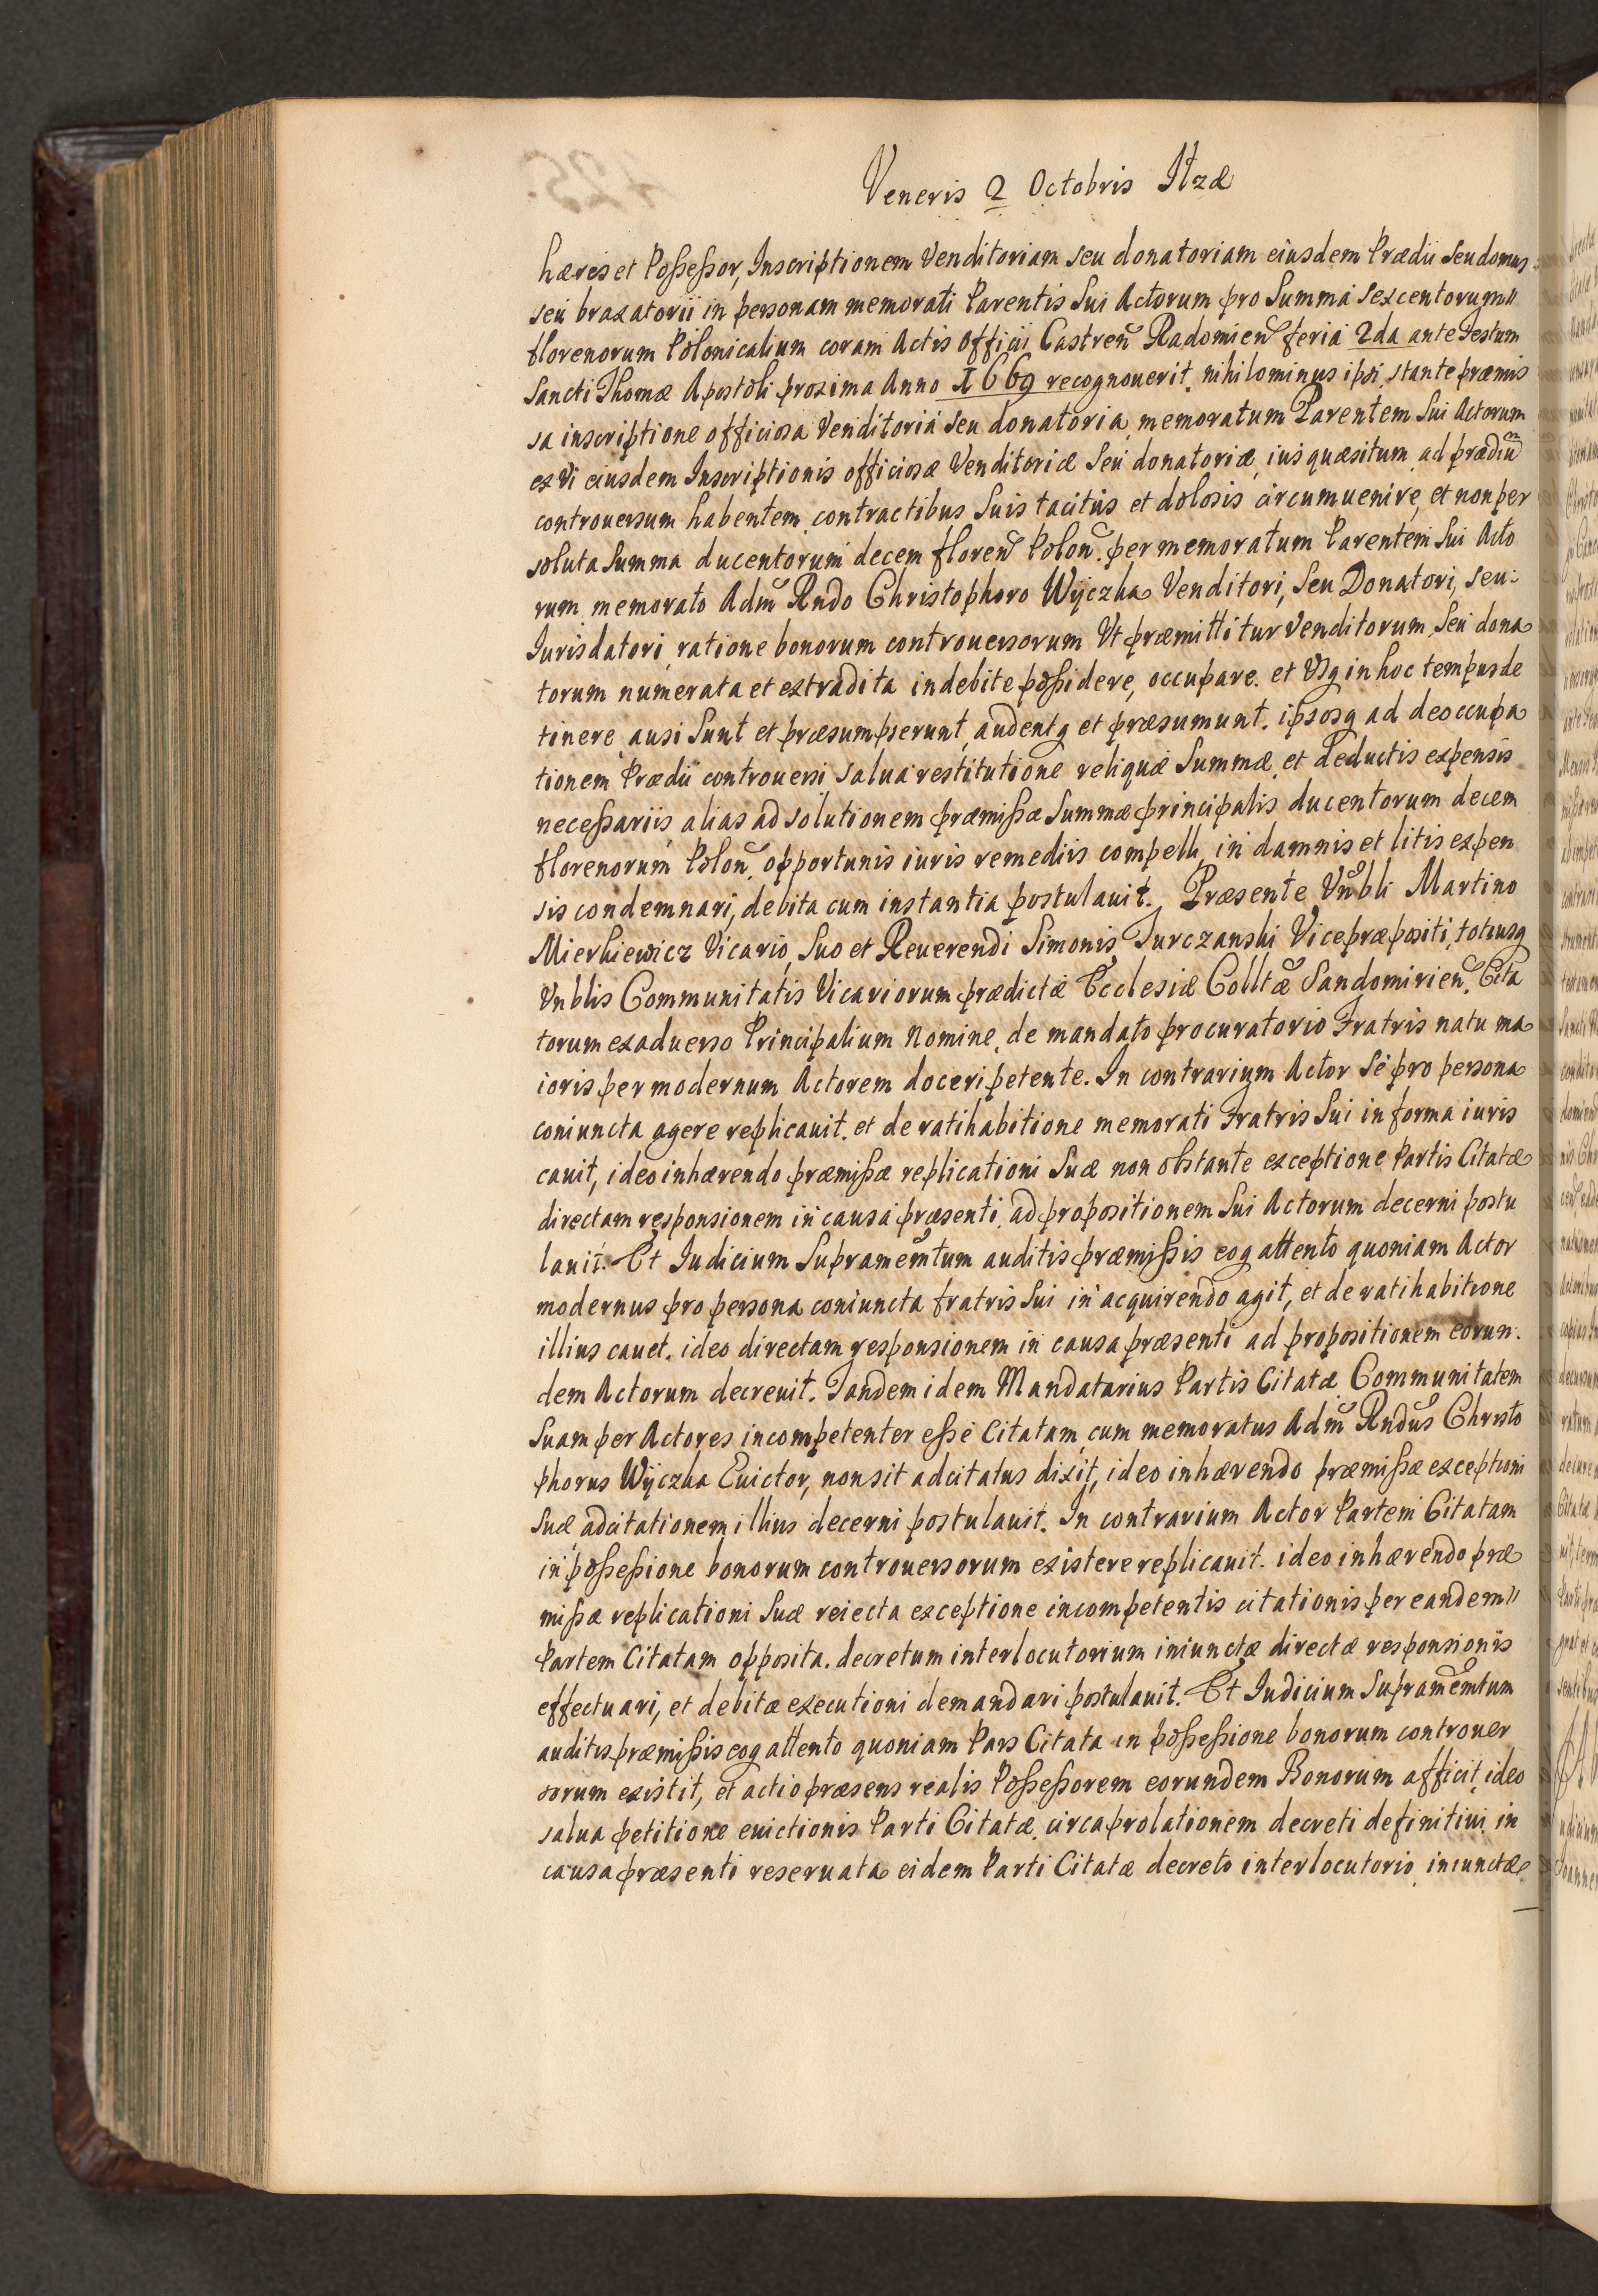 Veneris 2 Octobris Ilzæ
hæres et Possessor, Inscriptionem Venditoriam seu donatoriam eiusdem Prædii seu domus
seu braxatorii in personam memorati Parentis Sui Actorum pro Summa sexcentorum
florenorum Polonicalium coram Actis Officii Castren̄ Radomien̄ feria 2da ante Festum
Sancti Thomæ Apostoli proxima Anno 1669 recognouerit. nihilominus ipsi stante præmis
sa inscriptione officiosa Venditoria seu donatoria memoratum Parentem Sui Actorum
ex Vi eiusdem Inscriptionis officiosæ Venditoriæ Seu donatoriæ, ius quæsitum ad prædiū
controuersum habentem contractibus Suis tacitus et dolosis circumuenire, et non per
soluta Summa ducentorum decem floren̄ Polon̄. per memoratum Parentem Sui Acto
rum memorato Adm̄ Rndo Christophoro Wyczha Venditori, Seu Donatori, seu
Iurisdatori, ratione bonorum controuersorum Vt præmittitur Venditorum, Seu dona
torum numerata et extradita indebite possidere, occupare. et Vsq in hoc tempus de
tinere ausi Sunt et præsumpserunt, audentq et præsumunt. ipsosq ad deoccupa
tionem Prædii controuersi salua restitutione reliquæ Summæ, et deductis expensis
necessariis, alias ad solutionem præmissæ Summæ principalis ducentorum decem
florenorum Polon̄. opportunis iuris remediis compelli, in damnis et litis expen
sis condemnari, debita cum instantia postulauit. Præsente Vn̄bli Martino
Mierkiewicz Vicario, Suo et Reuerendi Simonis Turczanski Vicepræpositi, totiusq
Vnblis Communitatis Vicariorum prædictæ Ecclesiæ Colltæ Sandomirien̄. Cita
torum exaduerso Principalium Nomine, de mandato procuratorio Fratris natu ma
ioris per modernum Actorem doceri petente. In contrarium Actor Se pro persona
coniuncta agere replicauit. et de ratihabitione memorati Fratris Sui in forma iuris
cauit, ideo inhærendo præmissæ replicationi Suæ non obstante exceptione Partis Citatæ
directam responsionem in causa præsenti, ad propositionem Sui Actorum decerni postu
lauit. Et Iudicium Suprameñtum auditis præmissis eoq attento quoniam Actor
modernus pro persona coniuncta fratris Sui in acquirendo agit, et de ratihabitione
illius cauet. ideo directam responsionem in causa præsenti ad propositionem eorun.
dem Actorum decreuit. Tandem idem Mandatarius Partis Citatæ Communitatem
Suam per Actores incompetenter esse Citatam, cum memoratus Adm̄ Rndūs Christo
phorus Wyczha Euictor, non sit adcitatus dixit, ideo inhærendo præmissæ exceptioni
Suæ, adcitationem illius decerni postulauit. In contrarium Actor Partem Citatam
in possessione bonorum controuersorum existere replicauit. ideo inhærendo præ
missæ replicationi Suæ reiecta exceptione incompetentis citationis per eandem
Partem Citatam opposita. decretum interlocutorium iniunctæ directæ responsionis
effectuari, et debitæ executioni demandari postulauit. Et Iudicium Supramēmtum
auditis præmissis eoq attento quoniam Pars Citata in possessione bonorum controuer
sorum existit, et actio præsens realis Possessorem eorundem Bonorum afficit, ideo
salua petitione euictionis Parti Citatæ. circa prolationem decreti definitiui in
causa præsenti reseruata eidem Parti Citatæ decreto interlocutorio iniunctæ